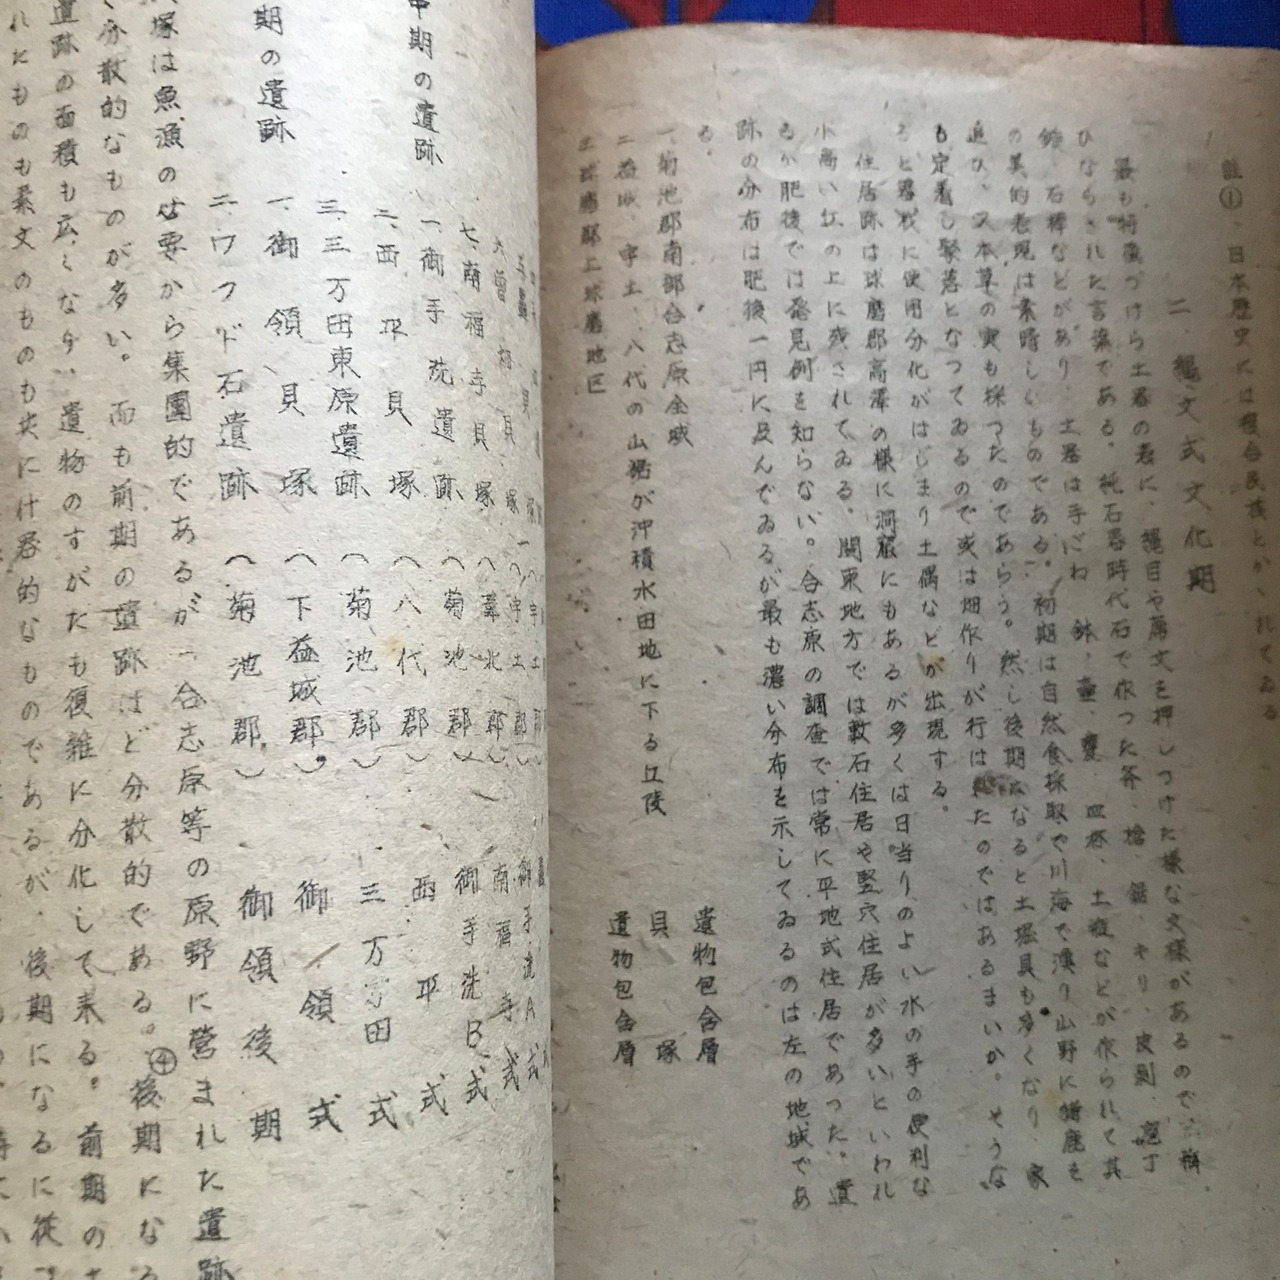 註①、日本歴史には複合民族とかゝれてゐる
二 縄文式文化期
最も特徴づけら土器の表に、縄目や蓆文を押しつけた様な文様があるので、
ひならされた言葉である。純石器時代石で作つた斧、槍、鏃、キリ、皮剝、庖丁
石棒などがあり、土器は手づね、鉢、壷、甕、皿、杯、土瓶などが作られて其
の美的表現は素晴しいものである。初期は自然食採取や川海で漁り山野に猪鹿を
追ひ、又本草の実も採つたのであらう。然し後期になると土堀具も多くなり、家
も定着し聚落となつてゐるので或は畑作りが行はれたのではあるまいか。そうな
ると器械に使用分化がはじまり土偶などが出現する。
住居跡は球磨郡高澤の様に洞窟にもあるが多くは日当りのよい水の手の便利な
小高い丘の上に残されてゐる。関東地方では敷石住居や竪穴住居が多いといわれ
るが肥後では発見例を知らない。合志原の調査では常に平地式住居であつた。遺
跡の分布は肥後一円に及んでゐるが最も濃い分布を示してゐるのは左の地域であ
る。
一、菊池郡南部合志原全域 遺物包含層
二、益城、宇土、八代の山裾が沖積水田地に下る丘陵 貝塚
三、球磨郡上球磨地区 遺物包含層
六、曽 貝塚 （宇土郡） 御手洗A式
七、南福寺貝塚 （葦北郡） 南福寺式
中期の遺跡 一、御手洗遺跡 （菊池郡） 御手洗B式
二、西平貝塚 （八代郡） 西平式
三、三万田東原遺跡 （菊池郡） 三万田式
期の遺跡 一、御領貝塚 （下益城郡） 御領式
二、ワクド石遺跡 （菊池郡） 御領後期
塚は魚漁の必要から集團的であるが、合志原等の原野に営まれた遺跡
分散的なものが多い。而も前期の遺跡はど分散的である。④後期になる
遺跡の面積も広くなり、遺物のすがたも復雑に分化して来る。前期の
れたものも素文のものも共に什器的なものであるが、後期になるに従つ